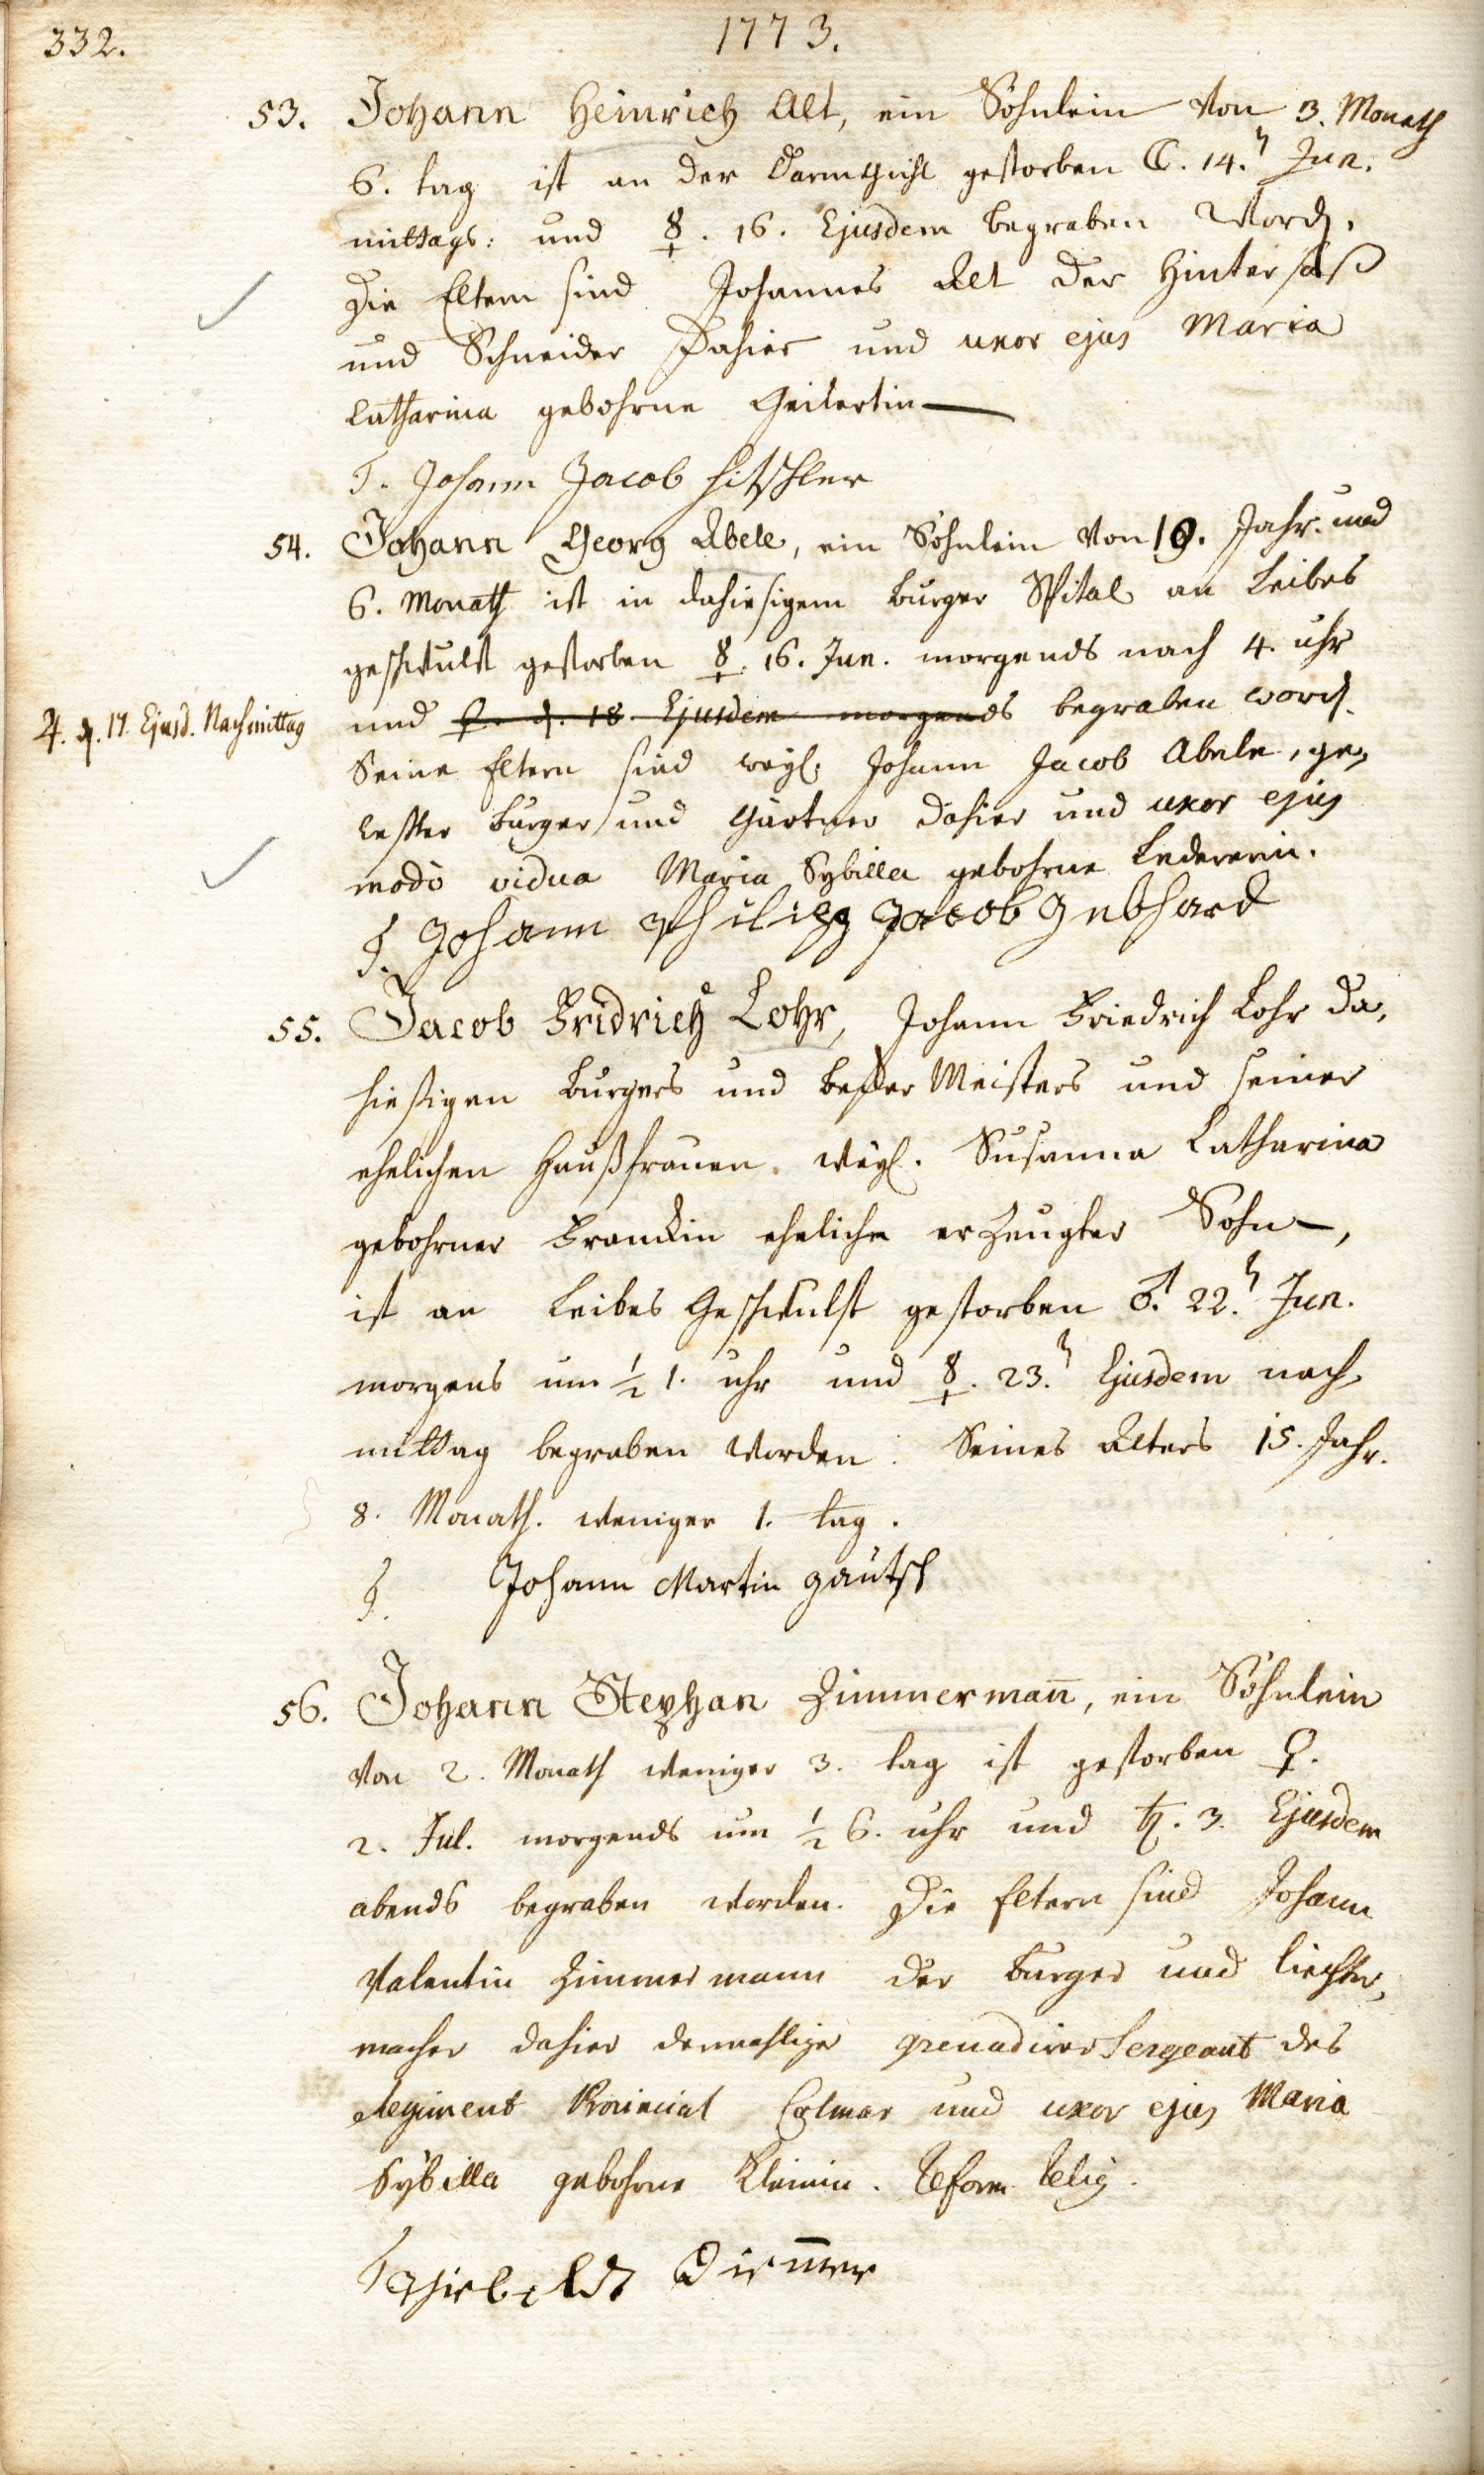 332.
1773.
53. Johann Heinrich Alt, ein Söhnlein von 3. Monath
6. tag ist an der Darmgicht gestorben ☾. 14.ⁿ Jun.
mittags: und ☿. 16. Ejusdem begraben word.
Die Eltern sind Johannes Alt der Hintersaß
und Schneider dahier und uxor ejus Maria
Catharina gebohrne
T. Johann Jacob Hitschler
54. Johann Georg Abele, ein Söhnlein von 10. Jahr. und
6. Monath ist in dahiesigem Burger Spital an Leibes
geschwulst gestorben ☿. 16. Jun. morgends nach 4. uhr
und ♀. d. 18 Ejusdem morgends begraben word.
♃. d. 17. Ejusd. Nachmittag
Seine Eltern sind weyl. Johann Jacob Abele, ge,
wester burger und Gärtner dahier und uxor ejus
modò vidua Maria Sybilla gebohrne Ledererin.
T. Johann Philipp Jacob Gebhard
55. Jacob Fridrich Lohr, Johann Friedrich Lohr da,
hiesigen Burgers und Meisters und seiner
ehelichen Haußfrauen. weyl. Susanna Catharina
gebohrner Franckin eheliche erzeugter Sohn,
ist an Leibes Geschwulst gestorben ♂. 22.ⁿ Jun.
morgens um ½ 1. uhr und ☿. 23.ⁿ Ejusdem nach,
mittag begraben worden. Seines Alters 15. Jahr.
8. Monath. weniger 1. tag.
T. Johann Martin Gautsch
56. Johann Stephan Zimmermañ, ein Söhnlein
von 2. Monath weniger 3. tag ist gestorben ♀.
2. Jul. morgends um ½ 6. uhr und ♄. 3. Ejusdem
abends begraben worden. Die Eltern sind Johann
Valentin Zimmermann der Burger und Liechter,
macher dahier dermahlige grenadirer Sergeant des
Regiment Provincial Colmar und uxor ejus Maria
Sybilla gebohrne Kleinin. Reform Relig.
T